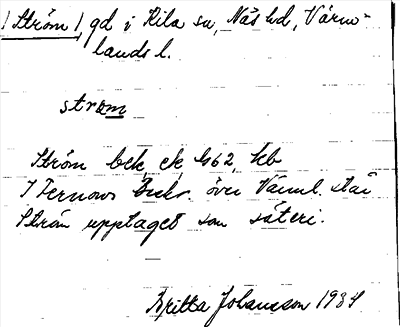 ! Ström !, gd i Kila sn, Näs hd, Värm-
lands l.
strøm
Ström bek, ek 462, kb
I Fernows Beskr. över Värml. står
Ström upptaget som säteri.
Britta Johansson 1934